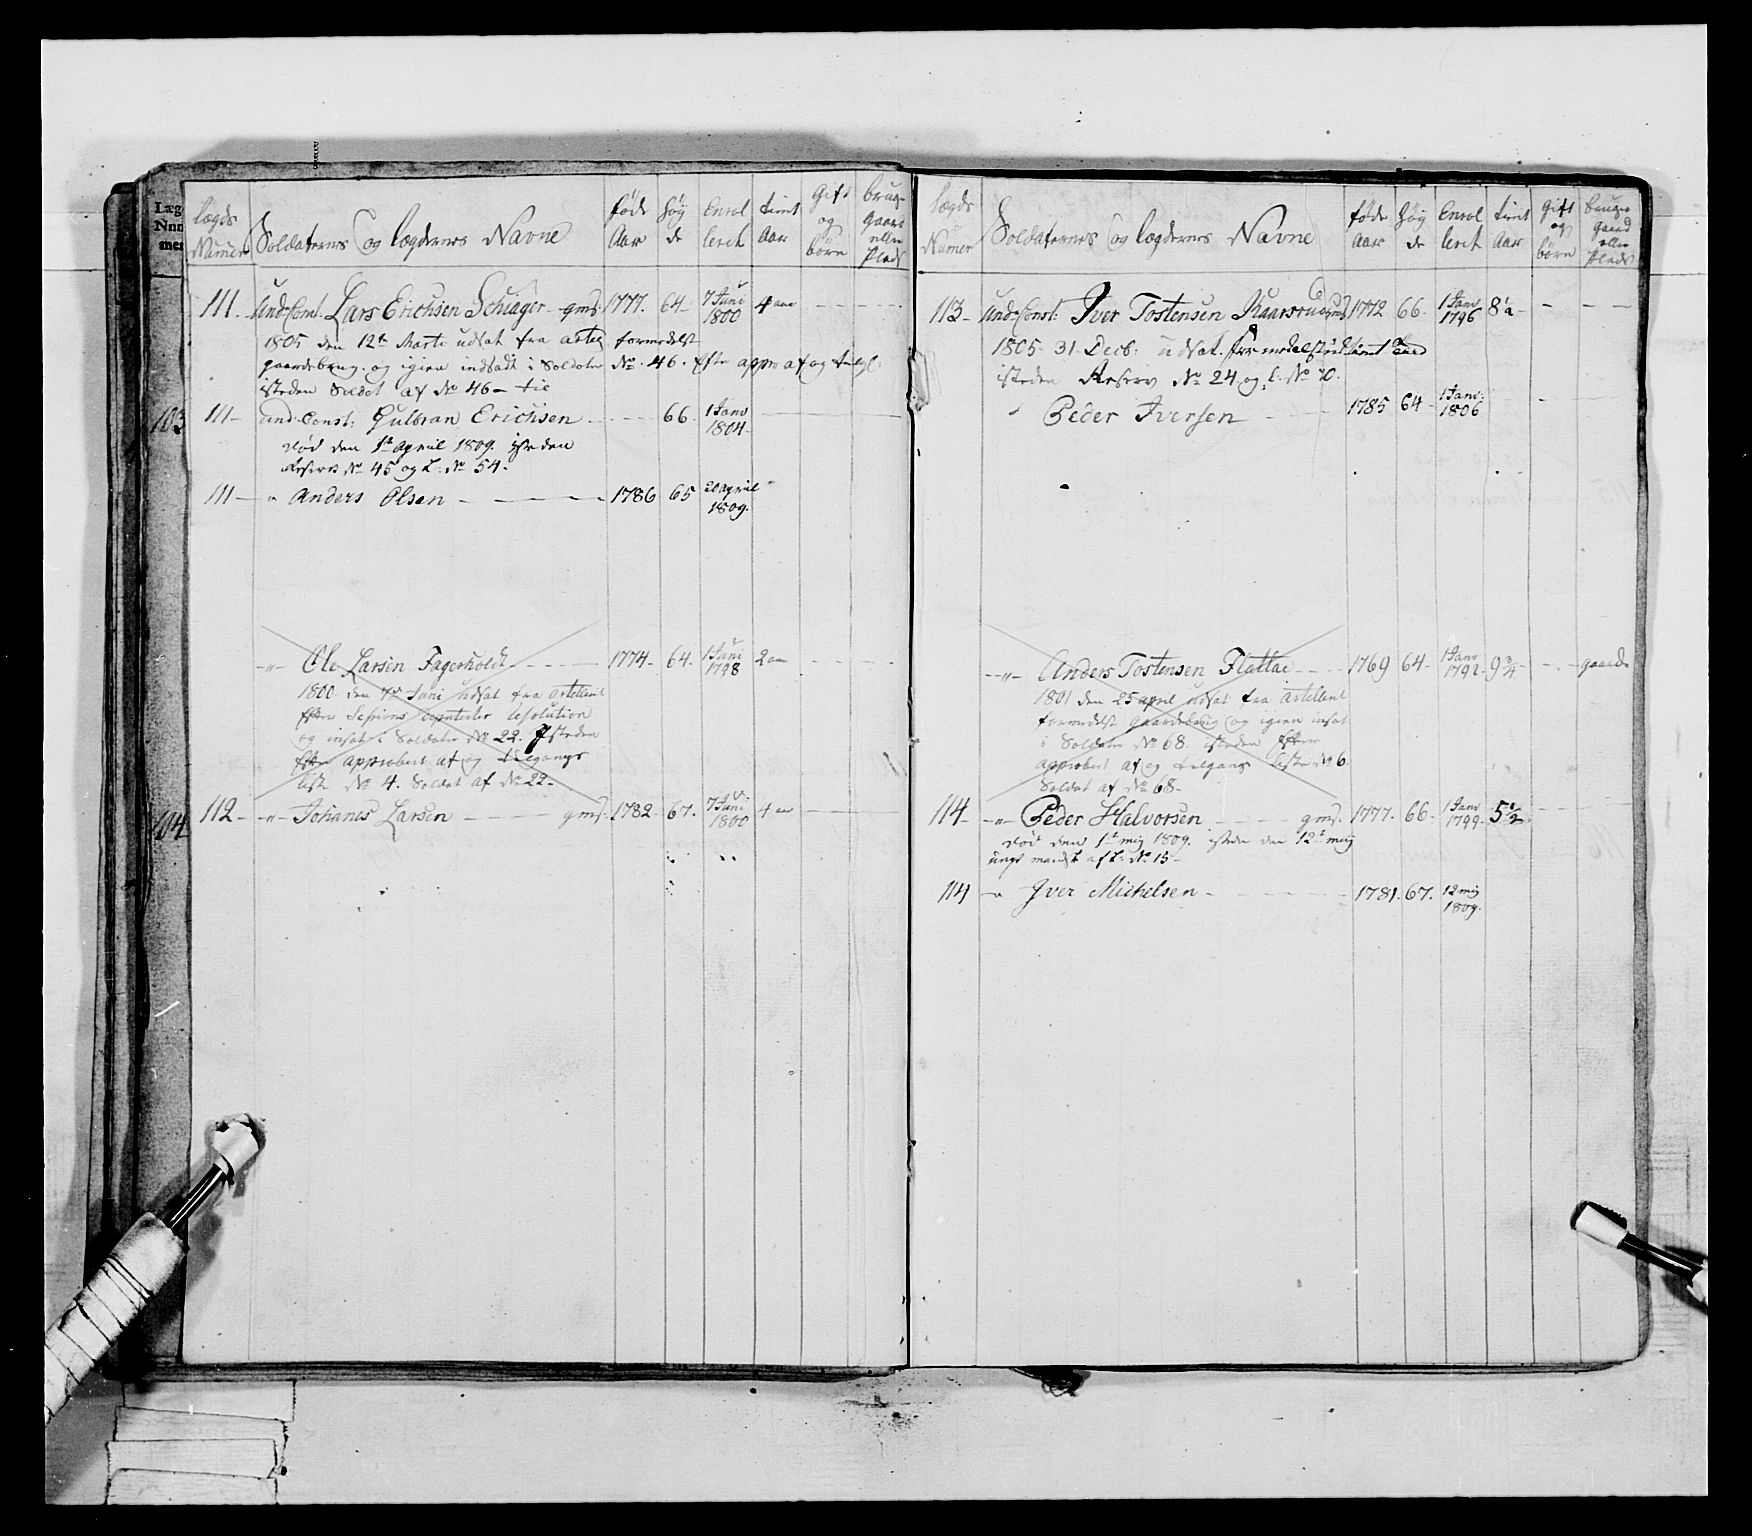 Læg
Num
mer
103
104
lægds Numer
Soldaternes og lægdernes Navne
føde Aar
høy de
Enrol leret
tient Aar
Gift og børn
bruger Gaard eller Plads
111. Und. Const. Lars Erichsen Schiager gms. 1777. 64 7 Juni 1800 4 aar
1805 den 12te Marti udsat fra artez formedelst
gaardebrug og igien indsadt i Soldater No. 46. efter appro af og
isteden Soldat af No 46
111 und. Const: Gulbran Erichsen 66. 1 Janv 1804
død den 1te April 1809. isteden
Reserv No 45 og L: No 54.
111 " Anders Olsen 1786 65 20 April 1809.
" Ole Larsen Fagerholdt 1774 64. 1 Juni 1798 2 aar
1800 den 7de Juni udsat fra artelleriet
efter Sessions resolution
og insat i Soldater No 22. isteden
efter approbert af og tilgangs
liste No 4. Soldat af No 22
112 " Johanes Larsen gms. 1782 67. 7 Juni 1800 4 aar
lægds Numer
Soldaternes og lægdernes Navne
føde aar
høy de
Enrol leret
tient Aar
Gift og børn
bruger Gaard eller Plads
113 Und. Const: Iver Tostensen Kaarsrud gms 1772 66. 1 Janv 1796 8 a
1805 31 Decb: udsat formedelst udtient
isteden Reserv No 24 og L. No 70.
" Peder Iversen 1785 64 1 Janv: 1806
" Anders Tostensen Flattae 1769 64 1 Janv 1792 9 3/4 gaarde
1801 den 25 april udsat fra artelleriet
formedelst Gaardebrug og igien insat
i Soldater No 68. isteden efter
approbert af og tilgangs liste No 6
Soldat af No 68
114 " Peder Halvorsen gms. 1777. 66 1 Janv 1799 5 1/2
død den 1te maj 1809. isteden den 12te maj
ungt mandsk af L: No 15
114 " Iver Michelsen 1781. 67. 12 maj 1809.